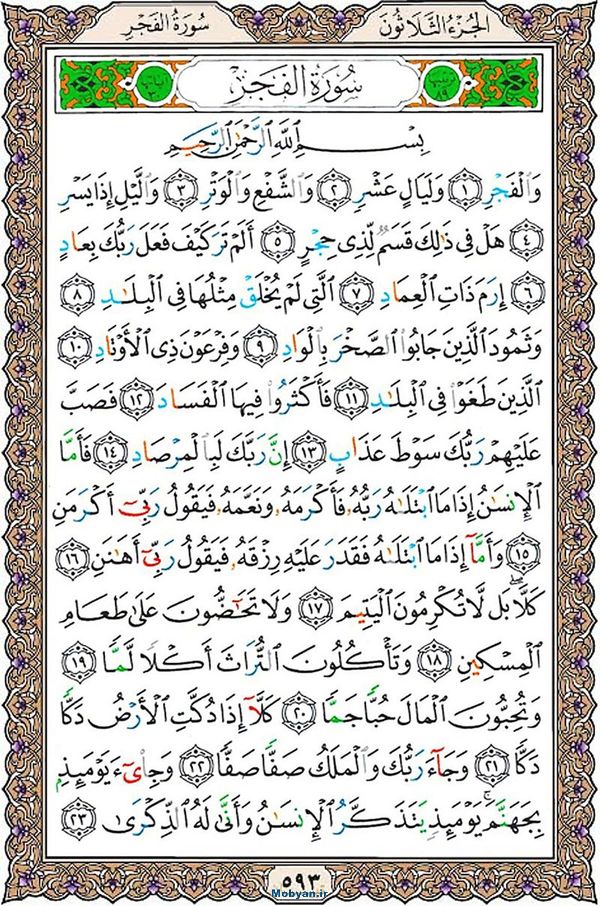 الجزء الثلاثون
سورة الفجر
سُورَةُ الفَجۡرِ
بِسۡمِ ٱللَّهِ ٱلرَّحۡمَٰنِ ٱلرَّحِيمِ
وَٱلۡفَجۡرِ ١ وَلَيَالٍ عَشۡرٖ ٢ وَٱلشَّفۡعِ وَٱلۡوَتۡرِ ٣ وَٱلَّيۡلِ إِذَا يَسۡرِ
٤ هَلۡ فِي ذَٰلِكَ قَسَمٞ لِّذِي حِجۡرٍ ٥ أَلَمۡ تَرَ كَيۡفَ فَعَلَ رَبُّكَ بِعَادٍ
٦ إِرَمَ ذَاتِ ٱلۡعِمَادِ ٧ ٱلَّتِي لَمۡ يُخۡلَقۡ مِثۡلُهَا فِي ٱلۡبِلَٰدِ ٨
وَثَمُودَ ٱلَّذِينَ جَابُواْ ٱلصَّخۡرَ بِٱلۡوَادِ ٩ وَفِرۡعَوۡنَ ذِي ٱلۡأَوۡتَادِ ١٠
ٱلَّذِينَ طَغَوۡاْ فِي ٱلۡبِلَٰدِ ١١ فَأَكۡثَرُواْ فِيهَا ٱلۡفَسَادَ ١٢ فَصَبَّ
عَلَيۡهِمۡ رَبُّكَ سَوۡطَ عَذَابٍ ١٣ إِنَّ رَبَّكَ لَبِٱلۡمِرۡصَادِ ١٤ فَأَمَّا
ٱلۡإِنسَٰنُ إِذَا مَا ٱبۡتَلَىٰهُ رَبُّهُۥ فَأَكۡرَمَهُۥ وَنَعَّمَهُۥ فَيَقُولُ رَبِّيٓ أَكۡرَمَنِ
١٥ وَأَمَّآ إِذَا مَا ٱبۡتَلَىٰهُ فَقَدَرَ عَلَيۡهِ رِزۡقَهُۥ فَيَقُولُ رَبِّيٓ أَهَٰنَنِ ١٦
كَلَّاۖ بَل لَّا تُكۡرِمُونَ ٱلۡيَتِيمَ ١٧ وَلَا تَحَٰٓضُّونَ عَلَىٰ طَعَامِ
ٱلۡمِسۡكِينِ ١٨ وَتَأۡكُلُونَ ٱلتُّرَاثَ أَكۡلٗا لَّمّٗا ١٩
وَتُحِبُّونَ ٱلۡمَالَ حُبّٗا جَمّٗا ٢٠ كَلَّآ إِذَا دُكَّتِ ٱلۡأَرۡضُ دَكّٗا
دَكّٗا ٢١ وَجَآءَ رَبُّكَ وَٱلۡمَلَكُ صَفّٗا صَفّٗا ٢٢ وَجِاْيٓءَ يَوۡمَئِذِۭ
بِجَهَنَّمَۚ يَوۡمَئِذٖ يَتَذَكَّرُ ٱلۡإِنسَٰنُ وَأَنَّىٰ لَهُ ٱلذِّكۡرَىٰ ٢٣
٥٩٣
Mobyan.ir